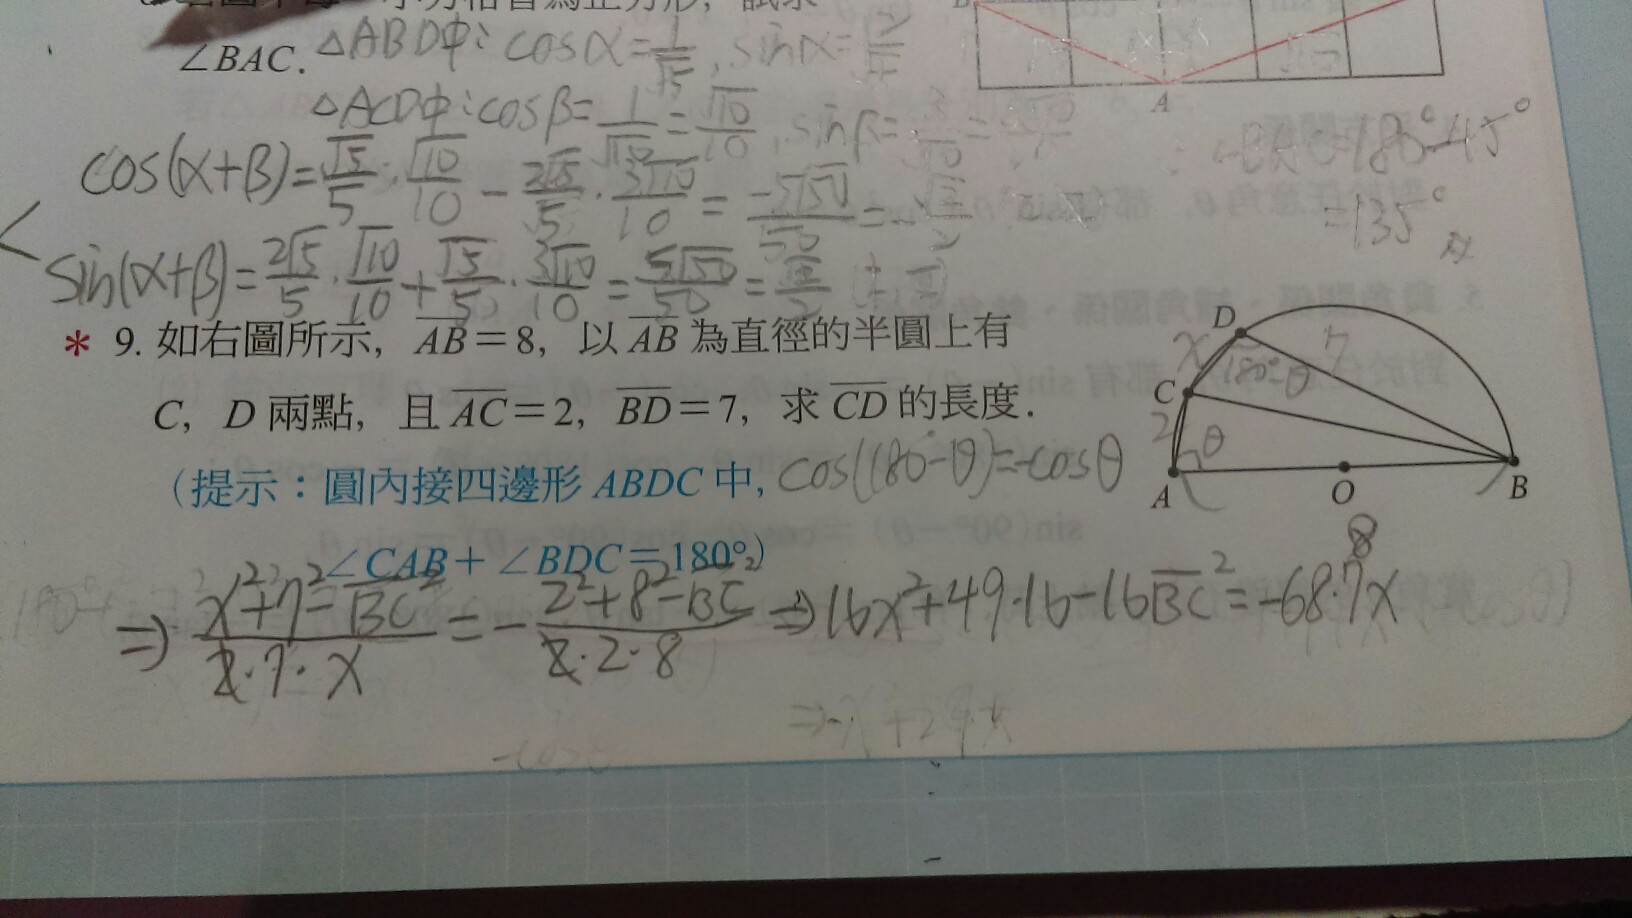 ∠BAC.
△ABD中: cosα=1/√5, sinα=
△ACD中: cosβ=1/√10=√10/10, sinβ=3/√10=
cos(α+β)=√5/5·√10/10-2√5/5·3√10/10=-5√50/50=-√2/2
=135°
sin(α+β)=2√5/5·√10/10+√5/5·3√10/10=5√50/50=√2/2
A
* 9. 如右圖所示, AB=8, 以 AB 為直徑的半圓上有
C, D 兩點, 且 AC=2, BD=7, 求 CD 的長度.
(提示:圓內接四邊形 ABDC 中,
cos(180-θ)=-cosθ
∠CAB+∠BDC=180°)
D
x
7
180°-θ
C
2
θ
A
O
B
8
⇒ (x²+7²-BC²)/(2·7·x)=-(2²+8²-BC²)/(2·2·8) ⇒ 16x²+49·16-16BC²=-68·7x